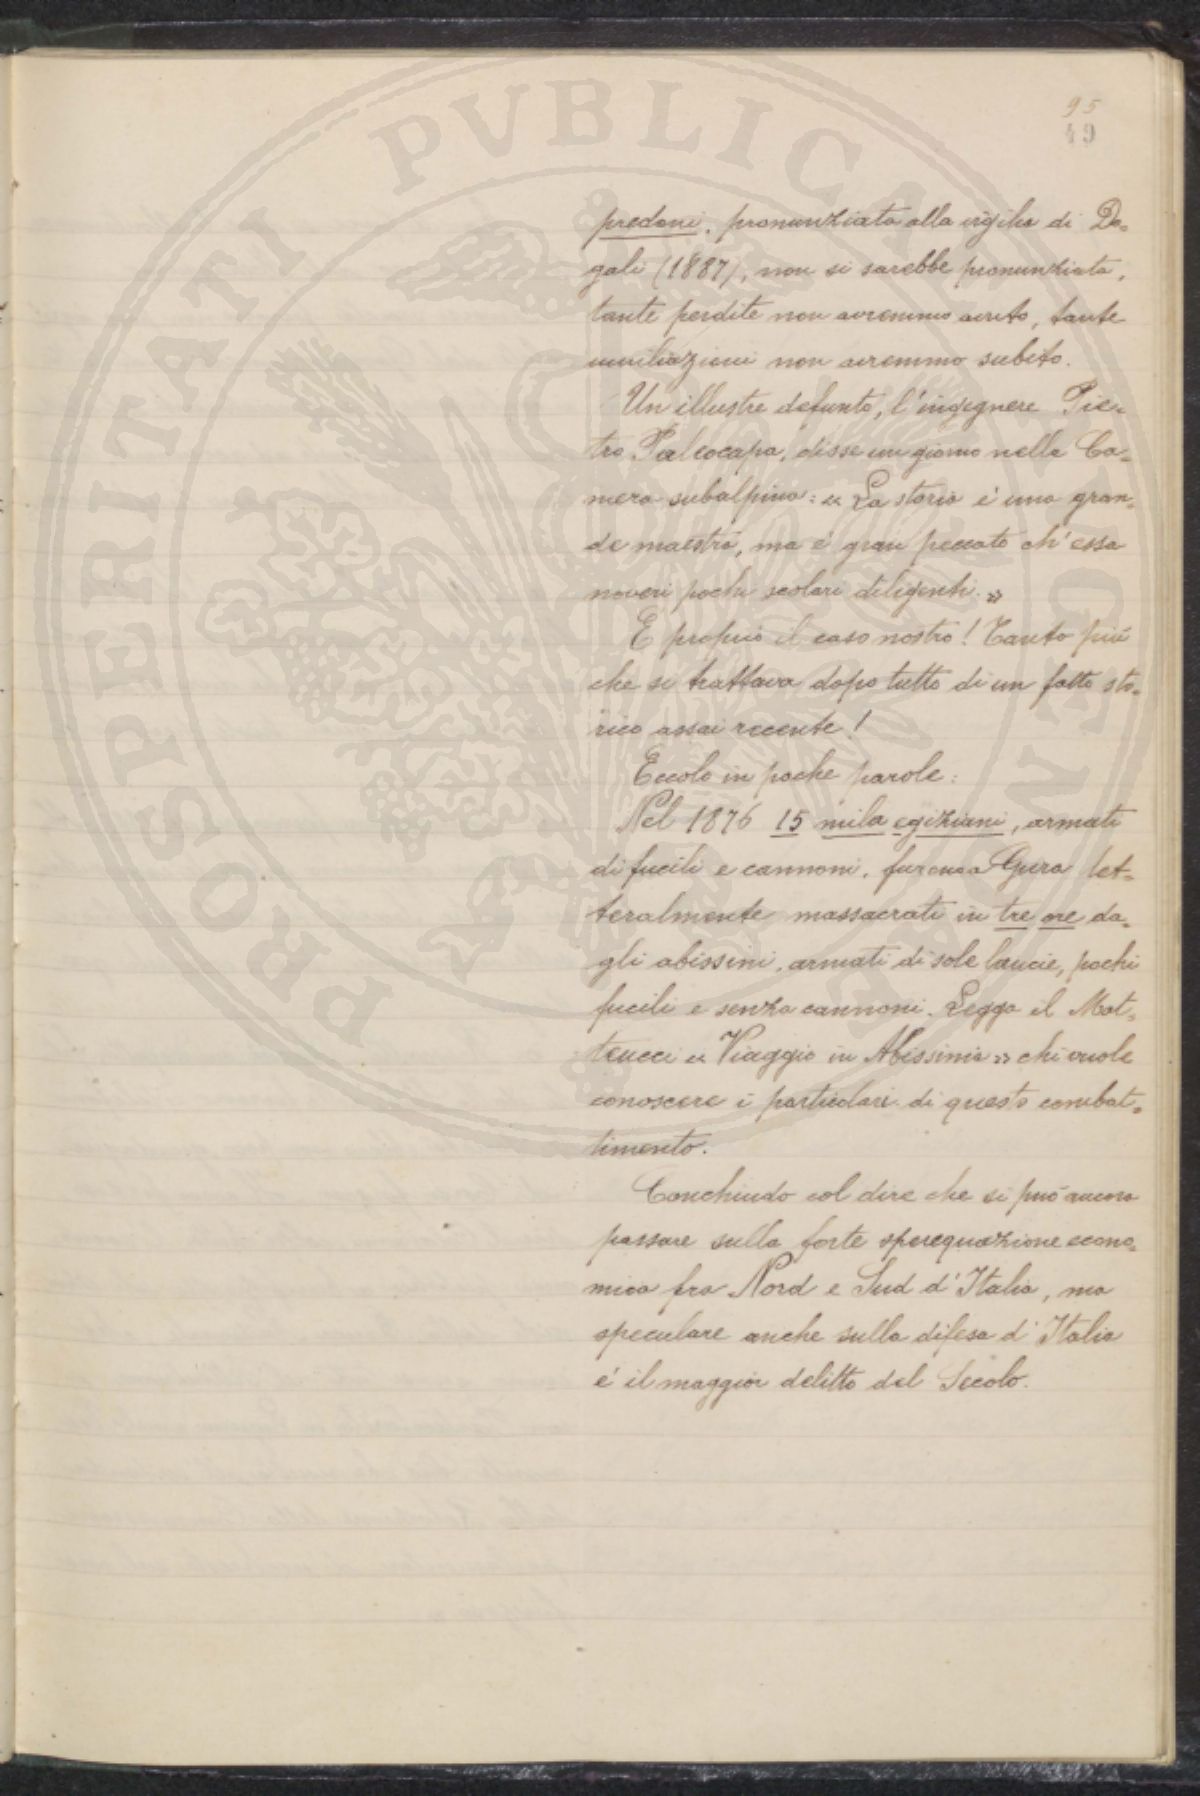 95
49
predoni, pronunziata alla vigilia di Do=
gali (1887), non si sarebbe pronunziata,
tante perdite non avremmo avuto, tante
umiliazioni non avremmo subito.
Un illustre defunto, l'ingegnere Pie=
tro Paleocapa, disse un giorno nella Ca=
mera subalpina: « La storia è una gran=
de maestra, ma è gran peccato ch'essa
noveri pochi scolari diligenti. »
E proprio il caso nostro! Tanto più
che si trattava dopo tutto di un fatto sto=
rico assai recente!
Eccolo in poche parole:
Nel 1876 15 mila egiziani, armati
di fucili e cannoni, furono a Gura let=
teralmente massacrati in tre ore da=
gli abissini, armati di sole lancie, pochi
fucili e senza cannoni. Legga il Mat=
teucci « Viaggio in Abissinia » chi vuole
conoscere i particolari di questo combat=
timento.
Conchiudo col dire che si può ancora
passare sulla forte sperequazione econo=
mica fra Nord e Sud d'Italia, ma
speculare anche sulla difesa d'Italia
è il maggior delitto del Secolo.
PROSPERITATI PVBLICAE AVGENDAE